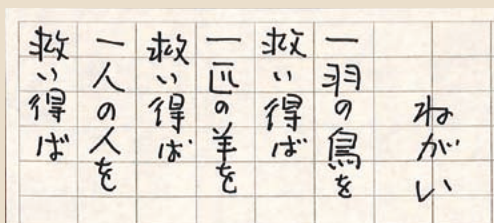 ねがい
一羽の鳥を
救い得ば
一匹の羊を
救い得ば
一人の人を
救い得ば